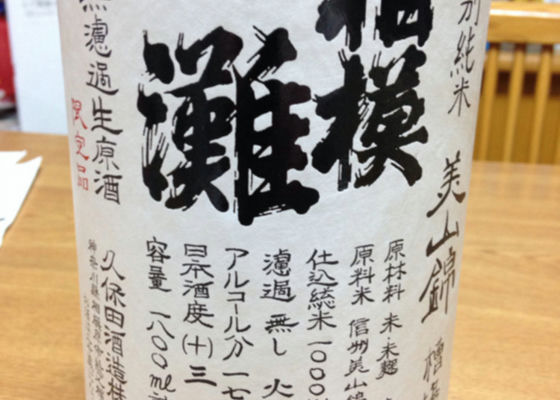 別純米
美山錦
相模
灘
無濾過生原酒
限定品
原材料 米・米麹
原料米 信州美山錦
仕込総米 1000
濾過 無し 火
アルコール分 一七
日本酒度(十)三
容量 一八00ml
久保田酒造株
神奈川県相模原市